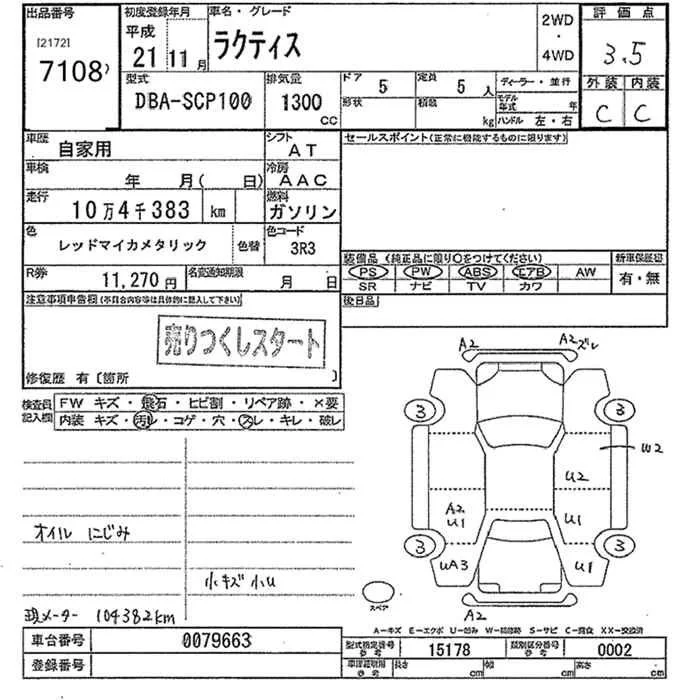 出品番号
[2172]
7108)
初度登録年月
平成
21 11月
車名・グレード
ラクティス
2WD
・
4WD
評価点
3.5
外装 内装
C C
型式
DBA-SCP100
排気量
1300
CC
ドア 5
定員 5 人
形状
積載 kg
ディーラー・並行
モデル年式 年
ハンドル 左・右
車歴
自家用
シフト
AT
セールスポイント(正常に機能するものに限ります)
車検
年 月( 日)
冷房
AAC
走行
10万4千383 km
燃料
ガソリン
色
レッドマイカメタリック
色替
色コード
3R3
装備品 (純正品に限り○をつけてください)
新車保証書
PS PW ABS エアB AW
有・無
SR ナビ TV カワ
R券
11,270円
名変通知期限
月 日
後日品
注意事項申告欄(不具合内容等は具体的に記入して下さい)
売りつくしスタート
修復歴 有〔箇所 〕
検査員記入欄
FW キズ・飛石・ヒビ割・リペア跡・×要
内装 キズ・汚レ・コゲ・穴・スレ・キレ・破レ
A2
A2ズレ
3
3
W2
U2
A2
U1
U1
3
3
UA3
U1
A2
スペア
オイル にじみ
小キズ 小U
現メーター 104382km
A-キズ E-エクボ U-凹み W-補修跡 S-サビ C-腐食 XX-交換済
車台番号
0079663
型式指定番号
参考
15178
類別区分番号
参考
0002
登録番号
参考
長さ cm
幅 cm
高さ cm